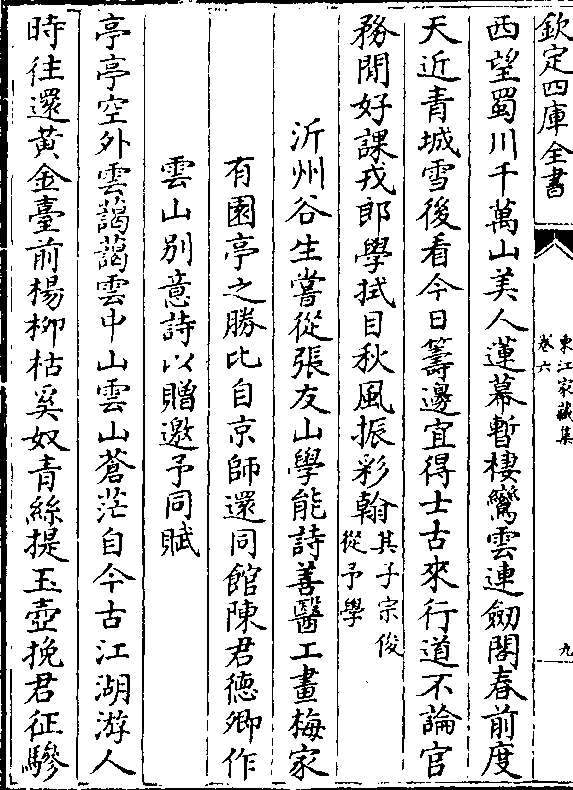 欽定四庫全書
東江家藏集
卷六
九
西望蜀川千萬山美人蓮幕暫棲鸞雲連劒閣春前度
天近青城雪後看今日籌邊宜得士古來行道不論官
務閒好課戎郎學拭目秋風振彩翰其子宗俊
從予學
沂州谷生嘗從張友山學能詩善醫工畫梅家
有園亭之勝比自京師還同館陳君德卿作
雲山別意詩以贈邀予同賦
亭亭空外雲藹藹雲中山雲山蒼茫自今古江湖游人
時往還黄金臺前楊柳枯奚奴青絲提玉壺挽君征驂